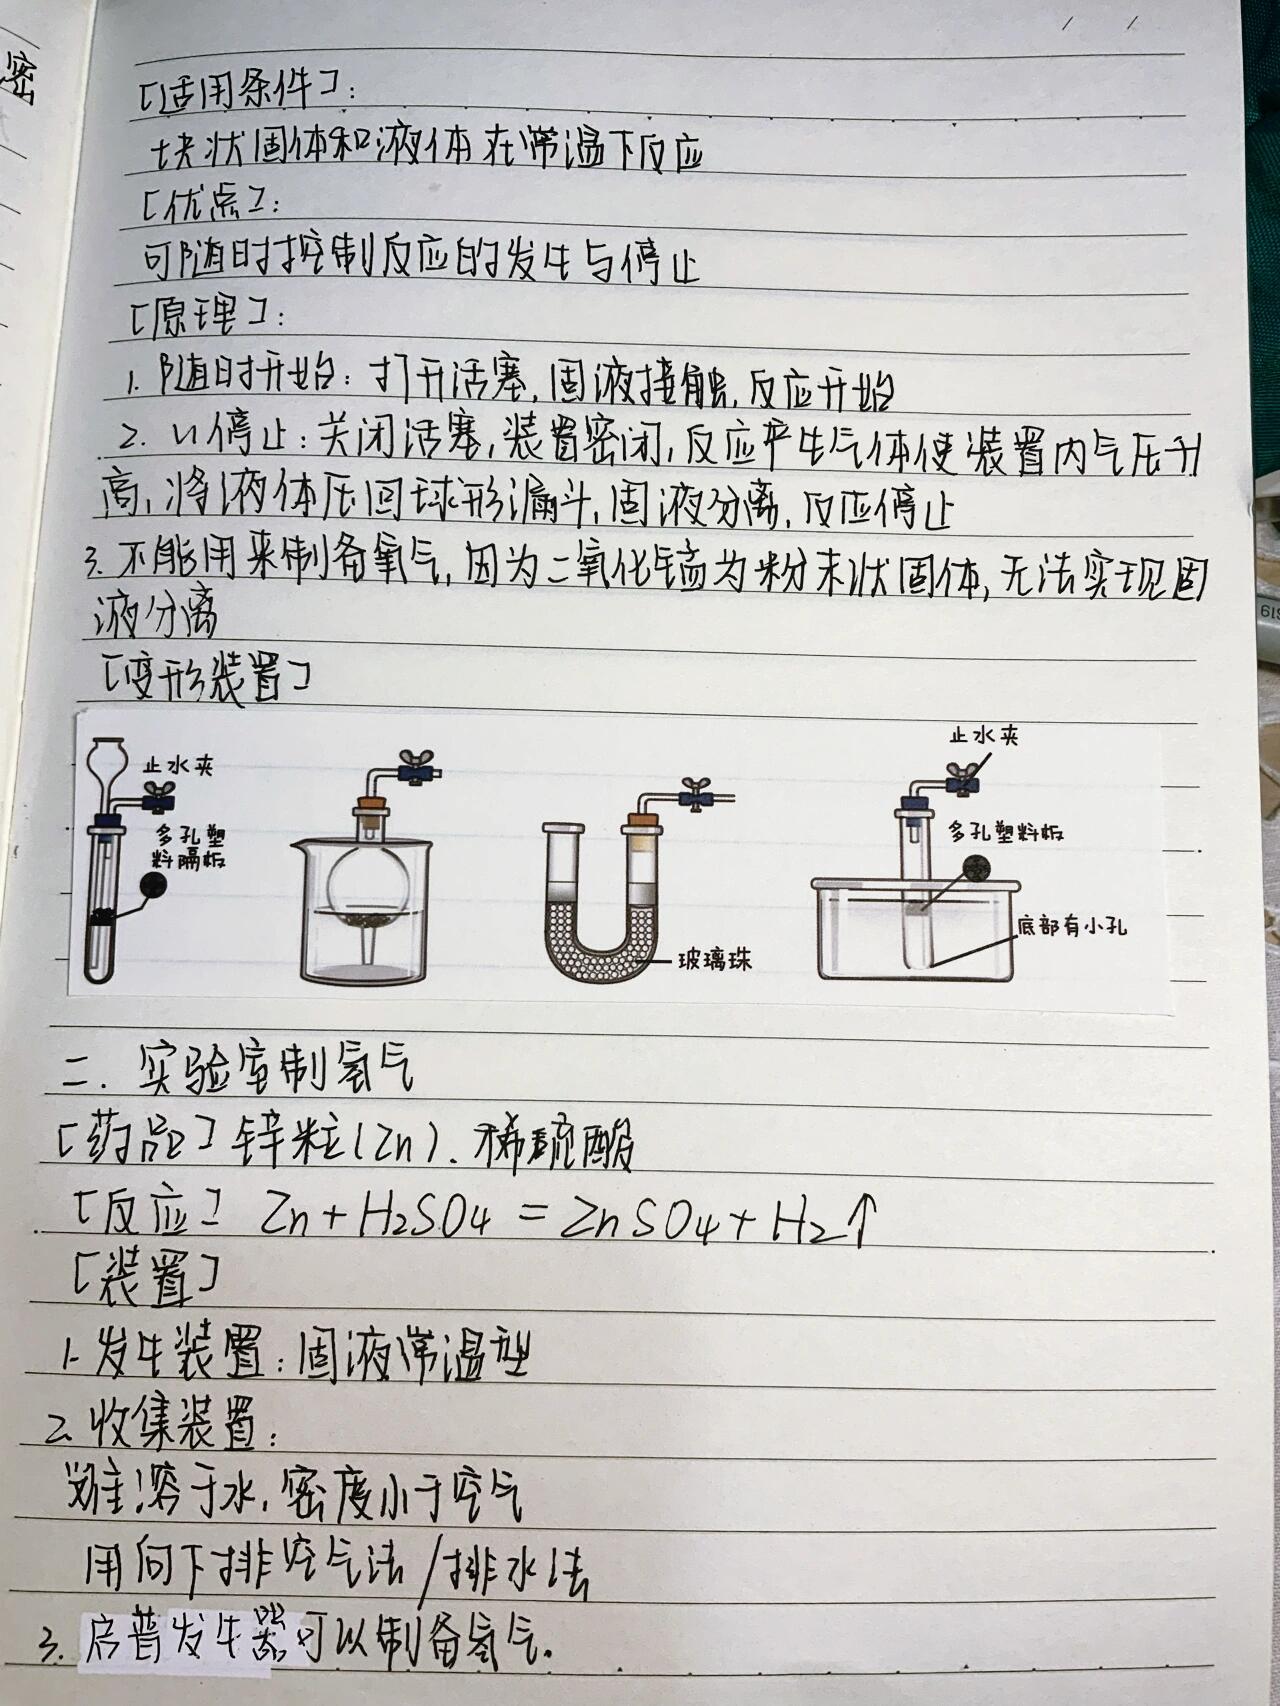 密
[适用条件]:
块状固体和液体在常温下反应
[优点]:
可随时控制反应的发生与停止
[原理]:
1. 随时开始: 打开活塞,固液接触,反应开始
2. 〃停止: 关闭活塞,装置密闭,反应产生气体使装置内气压升
高,将液体压回球形漏斗,固液分离,反应停止
3. 不能用来制备氧气,因为二氧化锰为粉末状固体,无法实现固
液分离
[变形装置]
止水夹
多孔塑
料隔板
玻璃珠
止水夹
多孔塑料板
底部有小孔
二. 实验室制氢气
[药品] 锌粒(Zn). 稀硫酸
[反应] Zn + H₂SO₄ = ZnSO₄ + H₂↑
[装置]
1. 发生装置: 固液常温型
2. 收集装置:
难溶于水,密度小于空气
用向下排空气法/排水法
3. 启普发生器可以制备氢气.